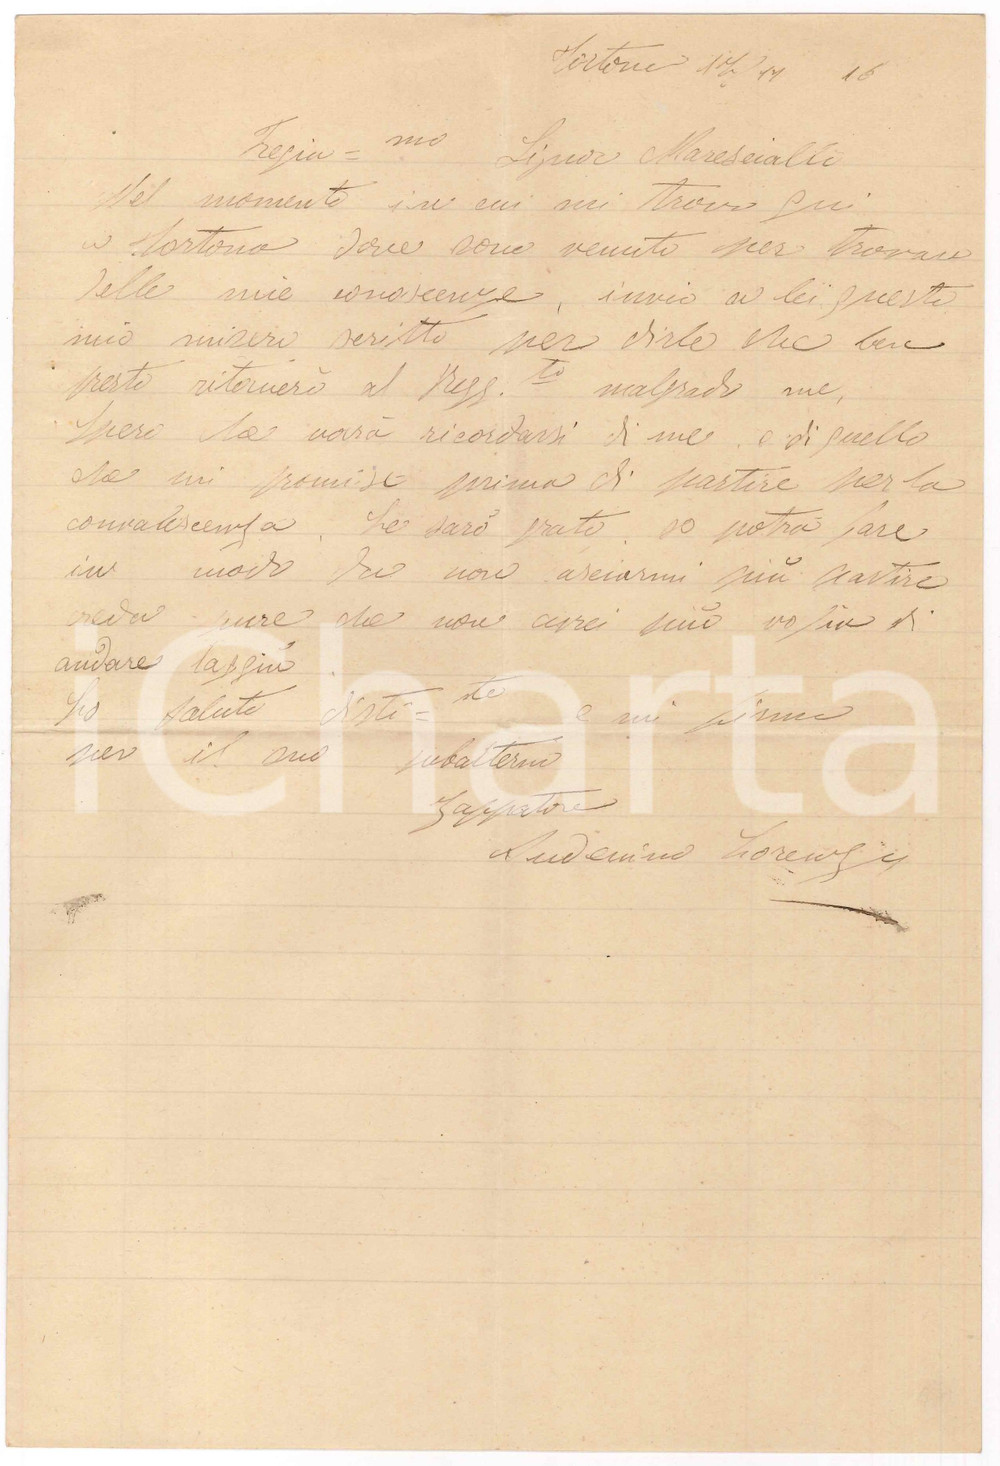 Tortona 17/11 16
Pregia=mo Signor Maresciallo
Nel momento in cui mi trovo qui
a Tortona dove sono venuto per trovare
delle mie conoscenze, invio a lei questo
mio misero scritto per dirle che ben
presto ritornerò al Regg.to malgrado me,
spero che vorà ricordarsi di me e di quello
che mi promise prima di partire per la
convalescenza. Le sarò grato, se potrà fare
in modo da non lasciarmi più partire
creda pure che non avrei più voglia di
andare laggiù
Lo saluto disti=te e mi firmo
per il suo subalterno
Zappatore
Audenino Lorenzo
iCharta